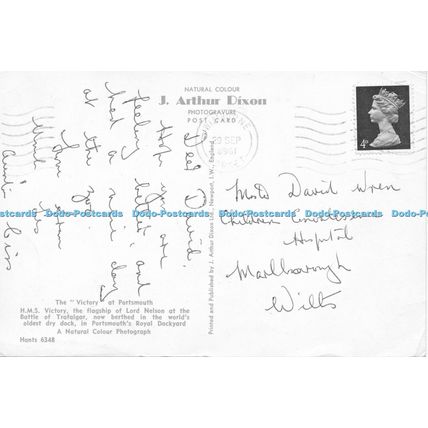 NATURAL COLOUR
J. Arthur Dixon
PHOTOGRAVURE
POST CARD
Dear David.
Hope you are
feeling better, and
had a nice day
at the Zoo.
Love from
Auntie
4D
SEP
Mast David Wren
Children
Hospital
Marlborough
Wilts
Dodo-Postcards Dodo-Postcards Dodo-Postcards Dodo-Postcards Dodo-Postcards
Printed and Published by J. Arthur Dixon Ltd., Newport, I.W., England.
The "Victory" at Portsmouth
H.M.S. Victory, the flagship of Lord Nelson at the
Battle of Trafalgar, now berthed in the world's
oldest dry dock, in Portsmouth's Royal Dockyard
A Natural Colour Photograph
Hants 6348